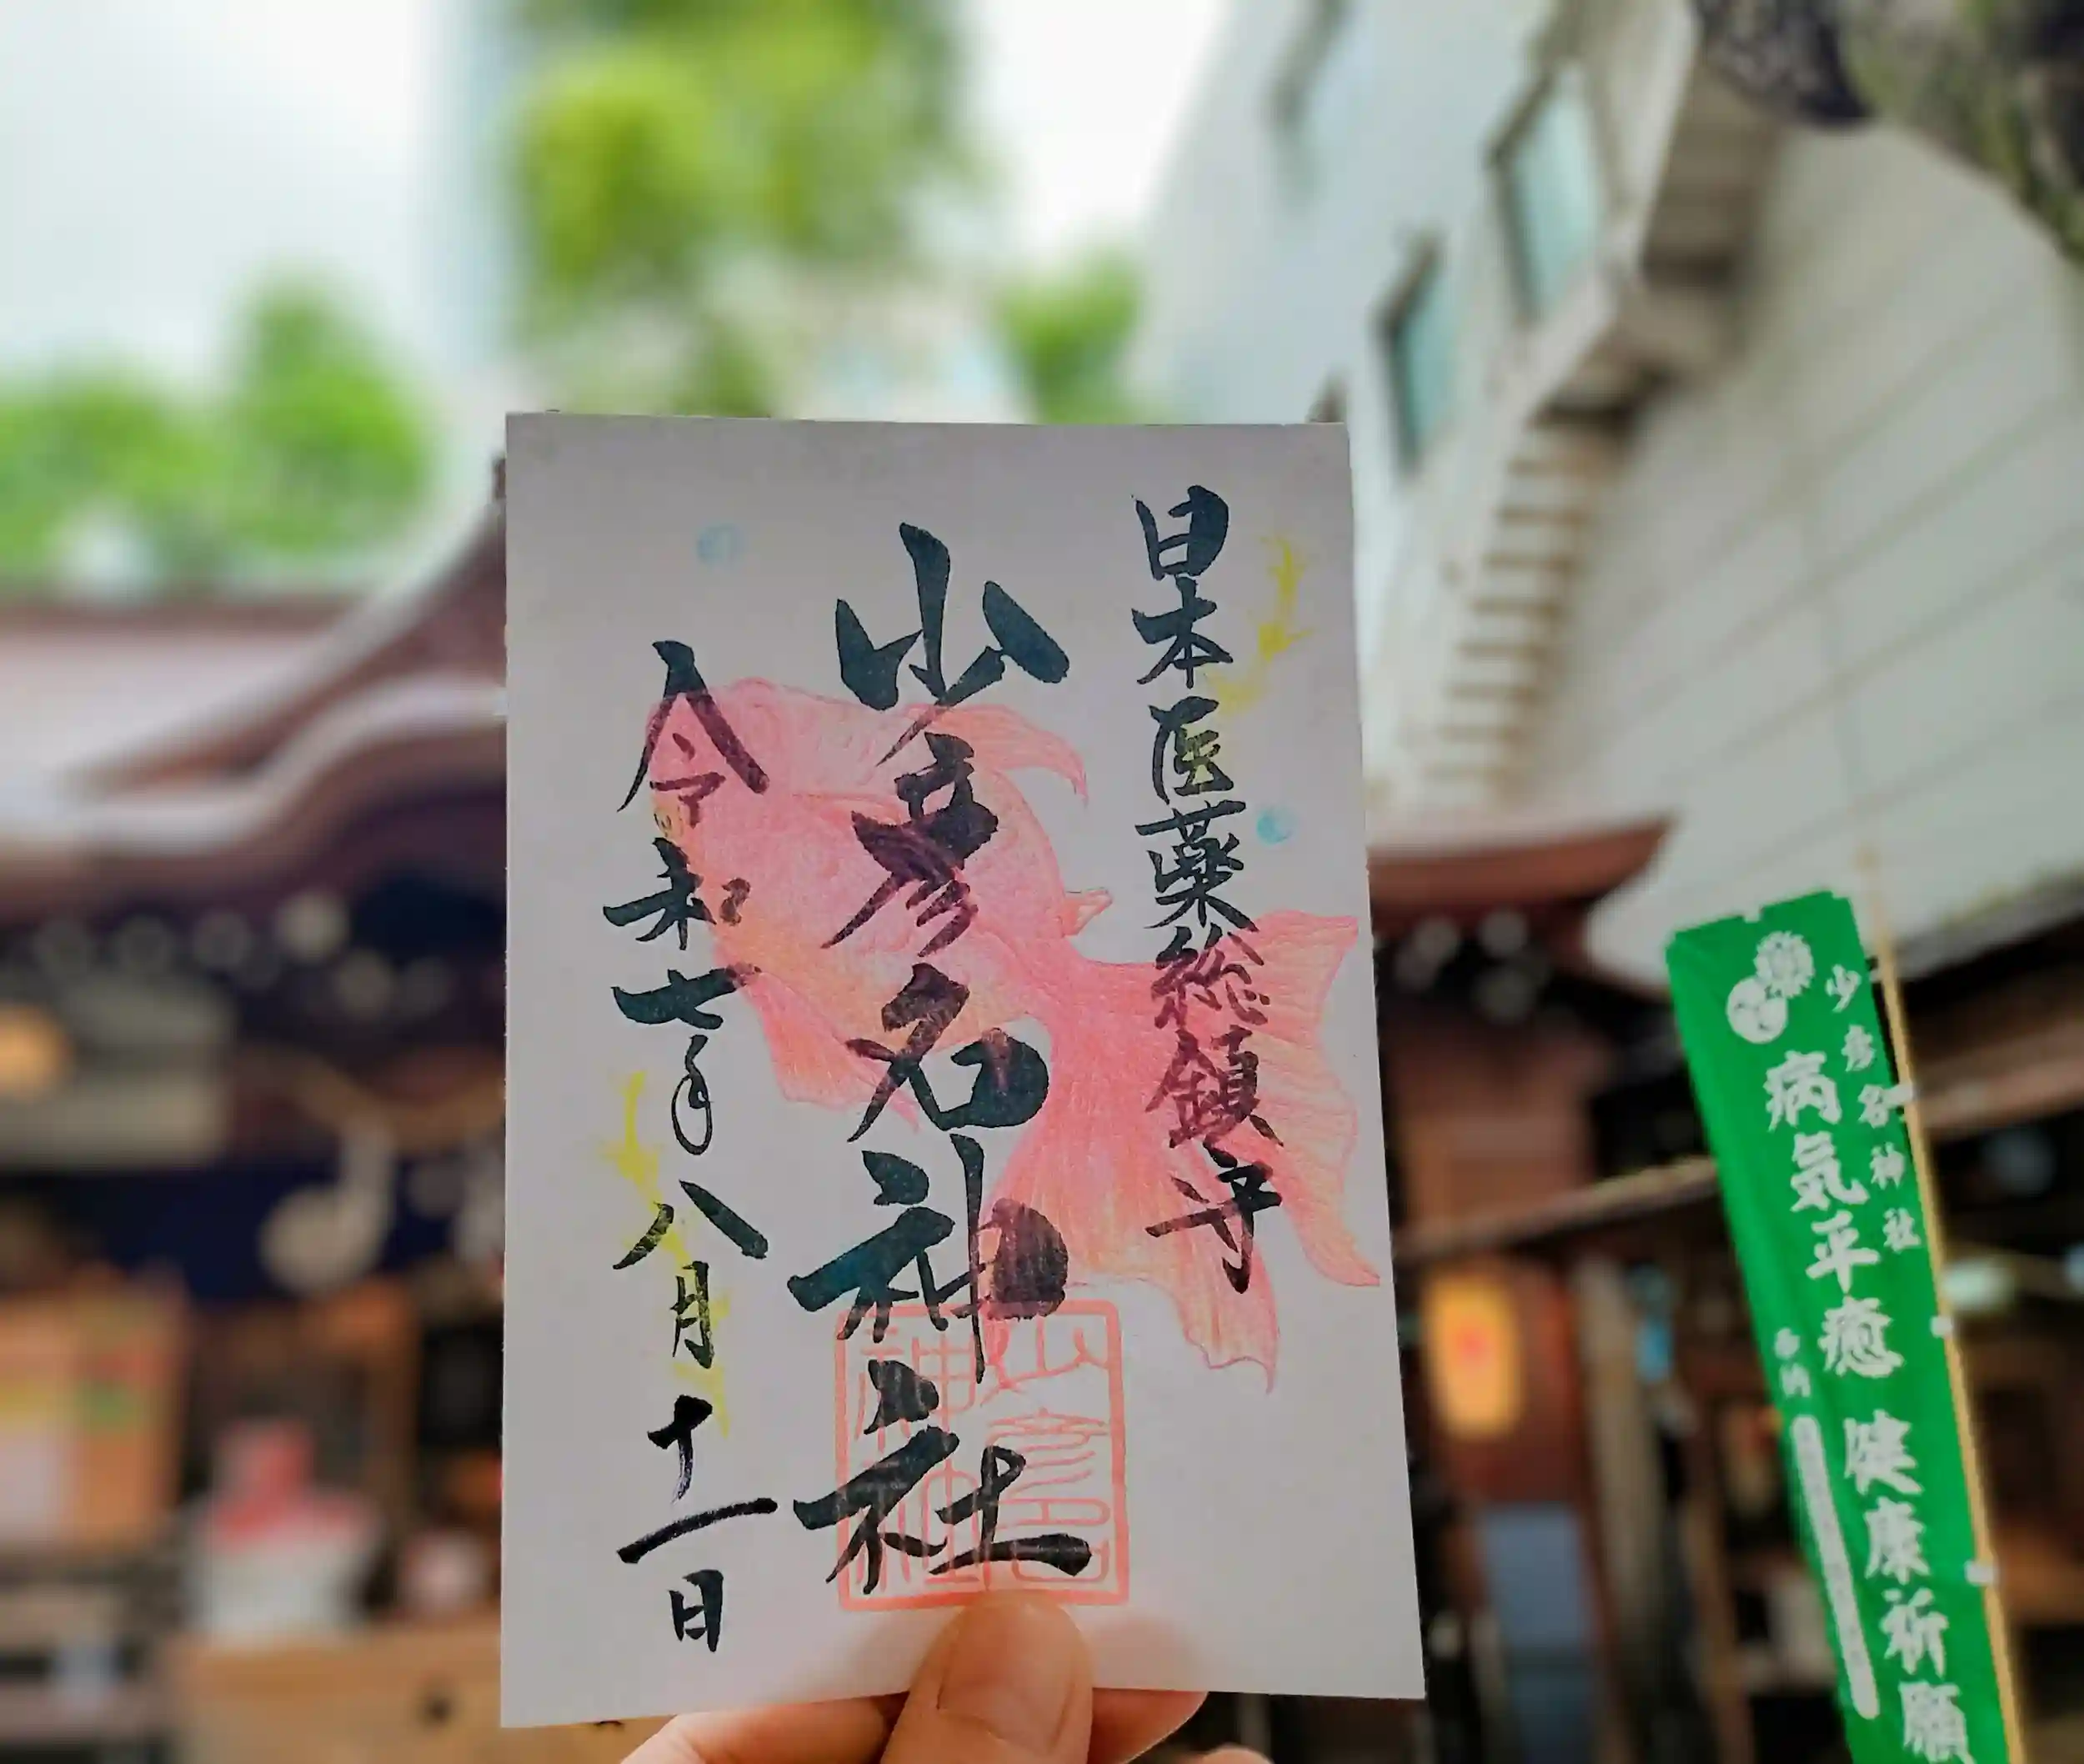 日本医薬総鎮守
少彦名神社
令和七年八月十一日
少彦名神社
病気平癒 健康祈願
奉納